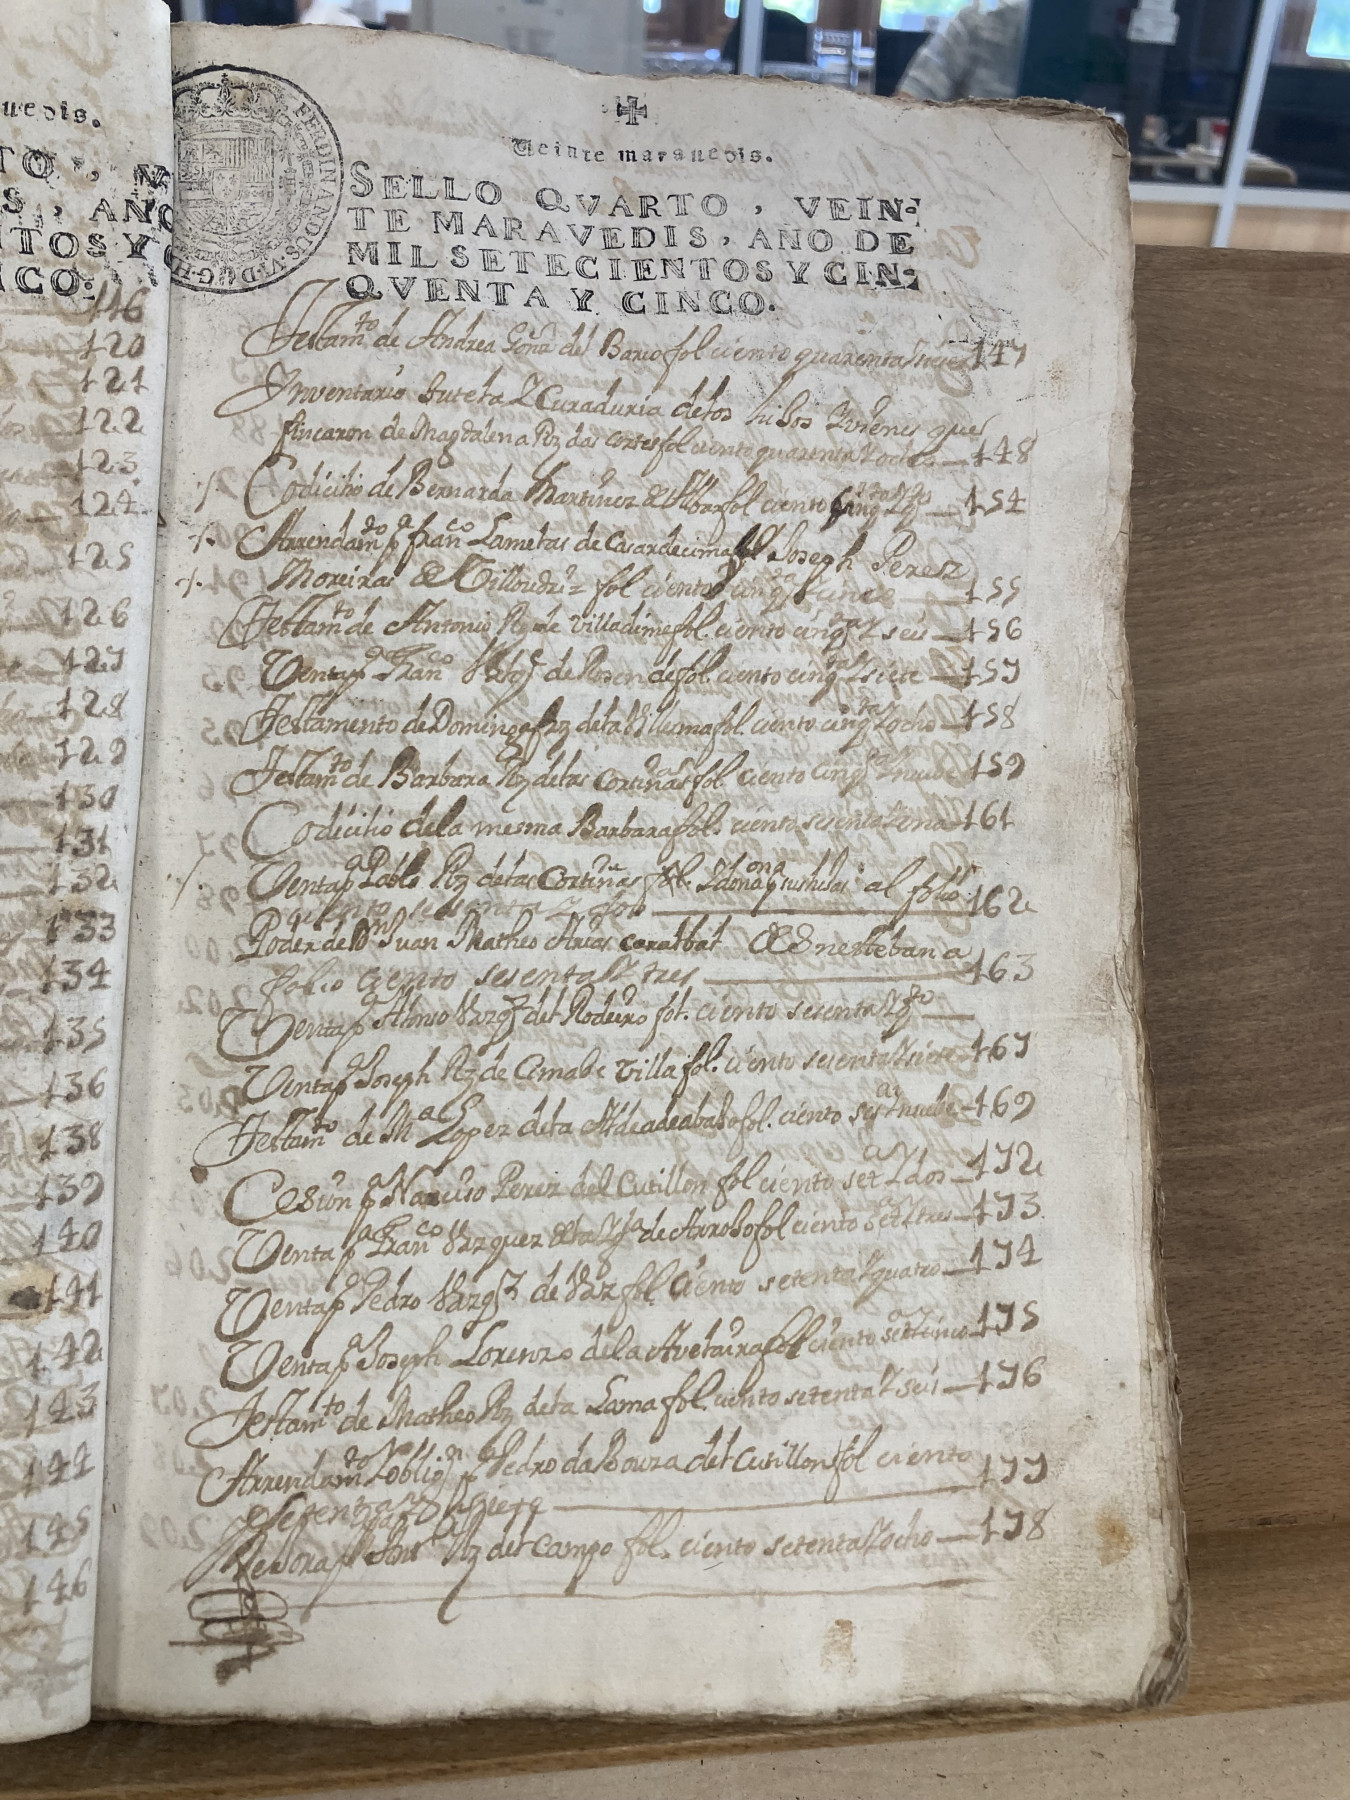 uedis.
TO, V
S, AÑO
NTOS Y C
NCO.
116
120
121
122
123
124
125
126
127
128
129
130
131
132
133
134
135
136
138
139
140
141
142
143
144
145
146
✠
Veinte marauedis.
FERDINANDUS·VI·D·G·H
SELLO QVARTO, VEIN-
TE MARAVEDIS, AÑO DE
MIL SETECIENTOS Y CIN-
QVENTA Y CINCO.
Testamto de Andrea del Barrio fol ciento quarenta Y siete 147
Ynventario tutela Y Curaduria delos hisos Y vienes que
fincaron de Magdalena Rz das cortes fol ciento quarenta Y ocho — 148
Codicilio de Bernarda Martinez fol ciento cinqta Y qto — 154
Arrendamto pr Franco Lametas de Casardecima fol Joseph Perez
Moreiras de fol ciento cinqta Y cinco — 155
Testamto de Antonio Rz de Villadime fol. ciento cinqta Y seis — 156
Venta pr Franco de Rosende fol. ciento cinqta Y siete — 157
Testamento de Domingo Rz dela fol. ciento cinqta Y ocho — 158
Testamto de Barbara Rz delas Cortiñas fol. ciento cinqta Y nuebe 159
Codicilio dela mesma Barbara fol. ciento sesenta Y una 161
Venta pr Pablo Rz delas Cortiñas fol. al folio
ciento sesenta Y dos — 162
Poder de Dn Juan Matheo Arias de Snesteban a
folio ciento sesenta Y tres — 163
Venta pr Vazqz del Rodeiro fol. ciento sesenta Y qto —
Venta pr Joseph Rz de Cimabe villa fol. ciento sesenta Y siete 167
Testamto de Ma Lopez dela Aldeadeabaso fol. ciento sesta Y nuebe 169
Cesion pr Narciso Perez del Cutillon fol ciento seta Y dos — 172
Venta pr Franco Vazquez de Arroso fol ciento seta Y tres — 173
Venta pr Pedro Vazqz de fol. ciento setenta Y quatro — 174
Venta pr Joseph Lorenzo dela fol ciento seta Y cinco 175
Testamto de Matheo Rz dela Lama fol. ciento setenta Y seis — 176
Arrendamto Y obligon pr Pedro da Bouza del Cutillon fol ciento
setenta Y siete — 177
pr Rz del Campo fol. ciento setenta Y ocho — 178